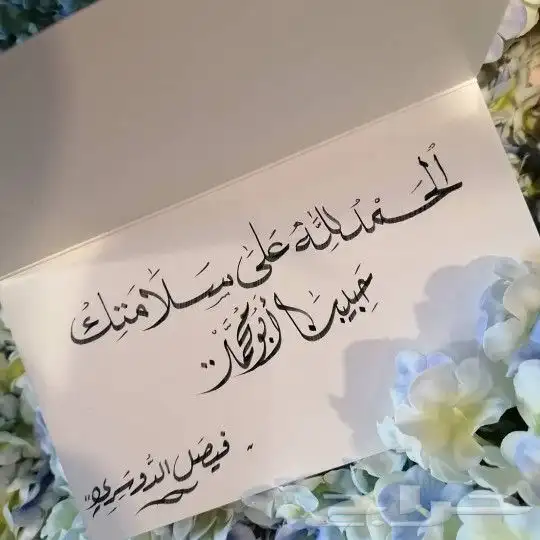 اَلْحَمْدُ لِلَّهِ عَلَى سَلَامَتِكْ
حَبِيبنَا أَبُو مُحَمَّد..
" فيصَل الدُّوسَرِي "
حراج